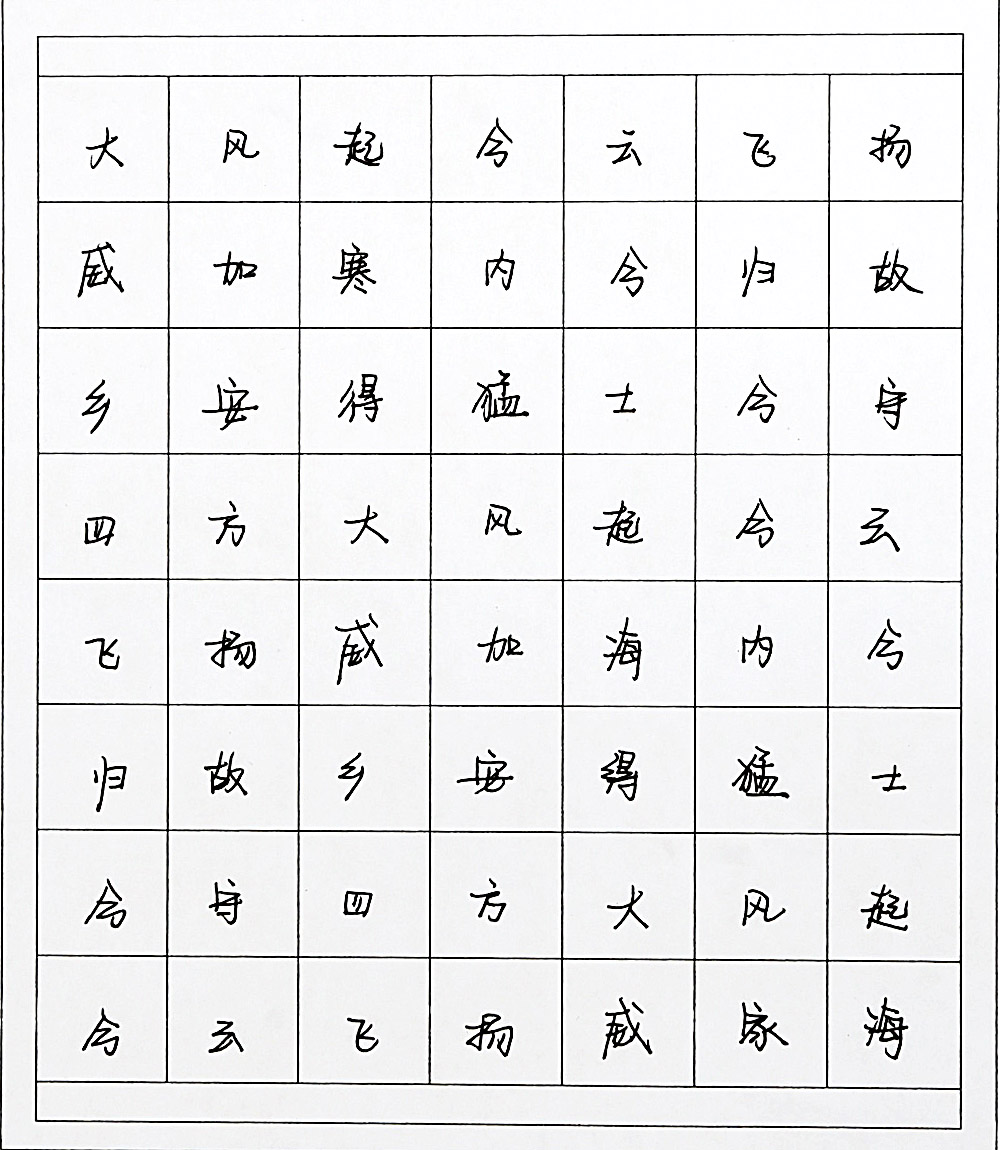 大风起兮云飞扬
威加寒内兮归故
乡安得猛士兮守
四方大风起兮云
飞扬威加海内兮
归故乡安得猛士
兮守四方大风起
兮云飞扬威家海